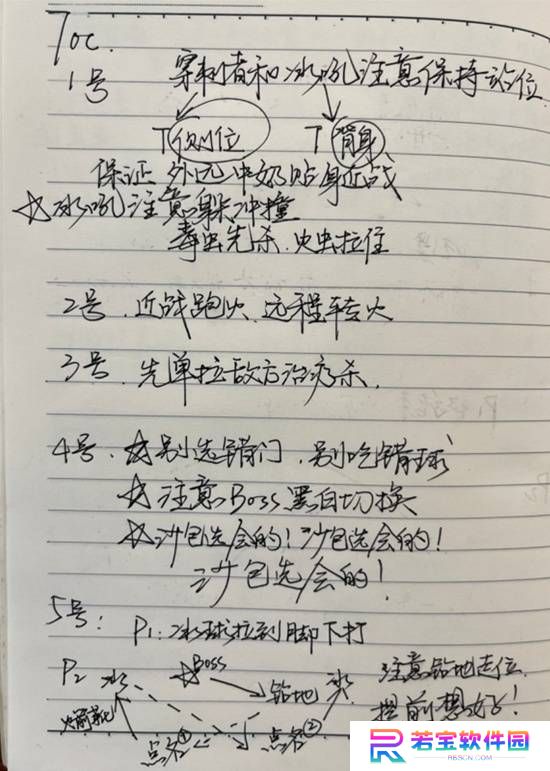 Toc.
1号 穿刺者和冰吼注意保持站位
T侧位 T背身
保证 外远中奶贴身近战
☆冰吼注意躲冲撞
毒虫先杀.火虫拉住
2号.近战跑火、远程转火
3号.先单拉敌方治疗杀.
4号.☆别选错门、别吃错球
☆注意Boss黑白切换
☆沙包选会的!沙包选会的!
沙包选会的!
5号: P1:冰球拉到脚下打
P2 冰 ☆Boss 钻地 冰 注意钻地走位
提前想好!
火箭靴 点名① 点名②
若宝软件园
RBSCN.COM